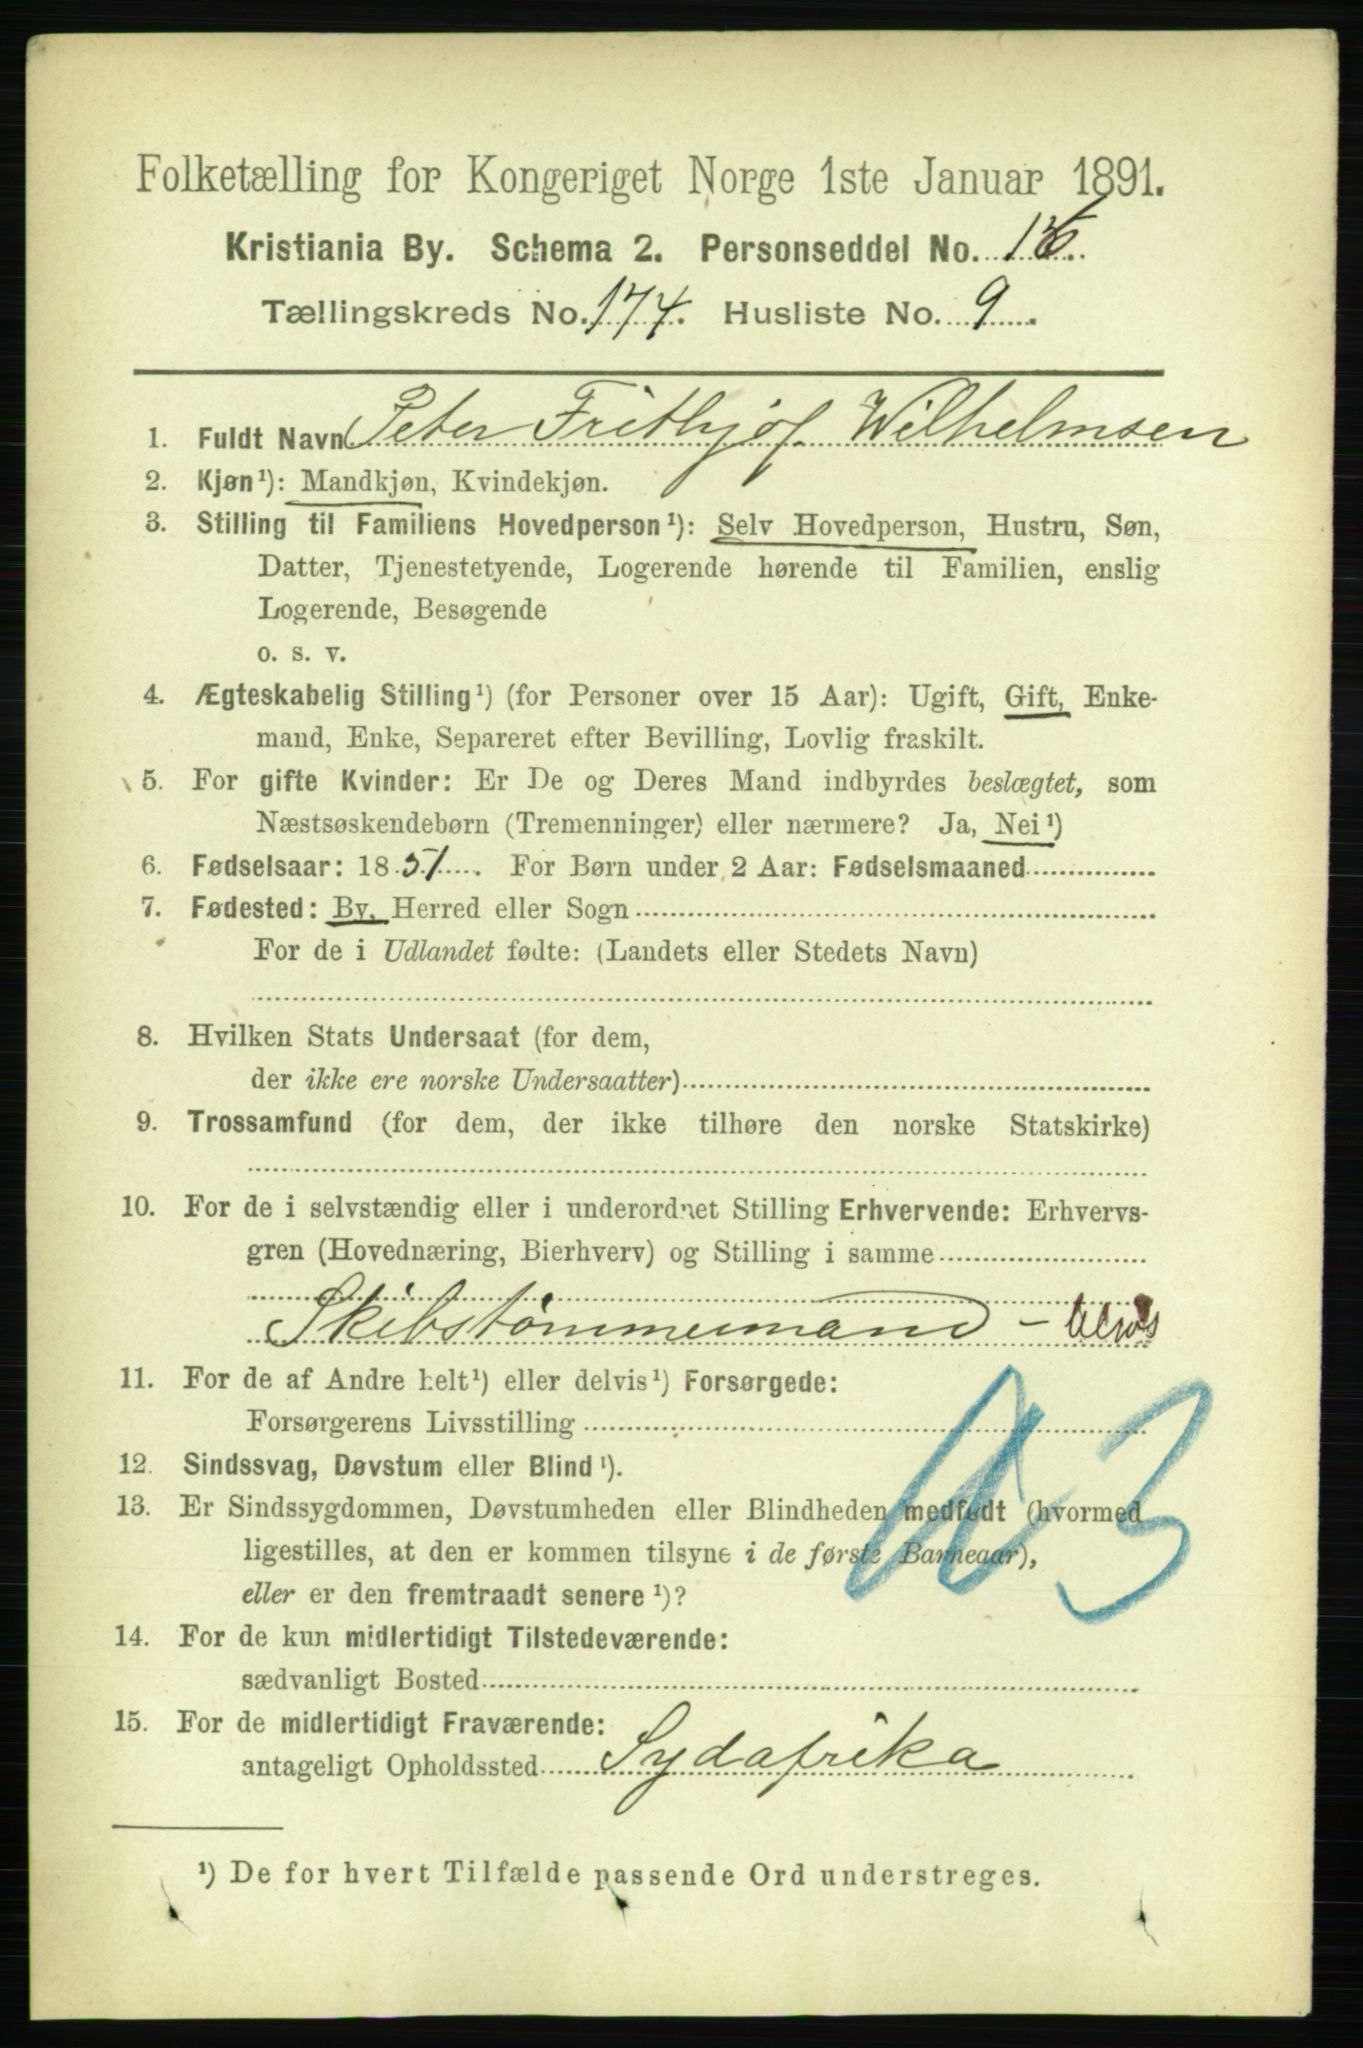 Folketælling for Kongeriget Norge 1ste Januar 1891.
Kristiania By. Schema 2. Personseddel No.
Tællingskreds No. 174. Husliste No. 9.
1. Fuldt Navn Peter Frithjof Wilhelmsen
2. Kjøn¹): Mandkjøn, Kvindekjøn.
3. Stilling til Familiens Hovedperson¹): Selv Hovedperson, Hustru, Søn,
Datter, Tjenestetyende, Logerende hørende til Familien, enslig
Logerende, Besøgende
o. s. v.
4. Ægteskabelig Stilling¹) (for Personer over 15 Aar): Ugift, Gift, Enke-
mand, Enke, Separeret efter Bevilling, Lovlig fraskilt.
5. For gifte Kvinder: Er De og Deres Mand indbyrdes beslægtet, som
Næstsøskendebørn (Tremenninger) eller nærmere? Ja, Nei¹)
6. Fødselsaar: 1851. For Børn under 2 Aar: Fødselsmaaned
7. Fødested: By, Herred eller Sogn
For de i Udlandet fødte: (Landets eller Stedets Navn)
8. Hvilken Stats Undersaat (for dem,
der ikke ere norske Undersaatter)
9. Trossamfund (for dem, der ikke tilhøre den norske Statskirke)
10. For de i selvstændig eller i underordnet Stilling Erhvervende: Erhvervs-
gren (Hovednæring, Bierhverv) og Stilling i samme
Skibstømmermand -
11. For de af Andre helt¹) eller delvis¹) Forsørgede:
Forsørgerens Livsstilling
12. Sindssvag, Døvstum eller Blind¹).
13. Er Sindssygdommen, Døvstumheden eller Blindheden medfødt (hvormed
ligestilles, at den er kommen tilsyne i de første Barneaar),
eller er den fremtraadt senere¹)?
14. For de kun midlertidigt Tilstedeværende:
sædvanligt Bosted
15. For de midlertidigt Fraværende:
antageligt Opholdssted Sydafrika
¹) De for hvert Tilfælde passende Ord understreges.